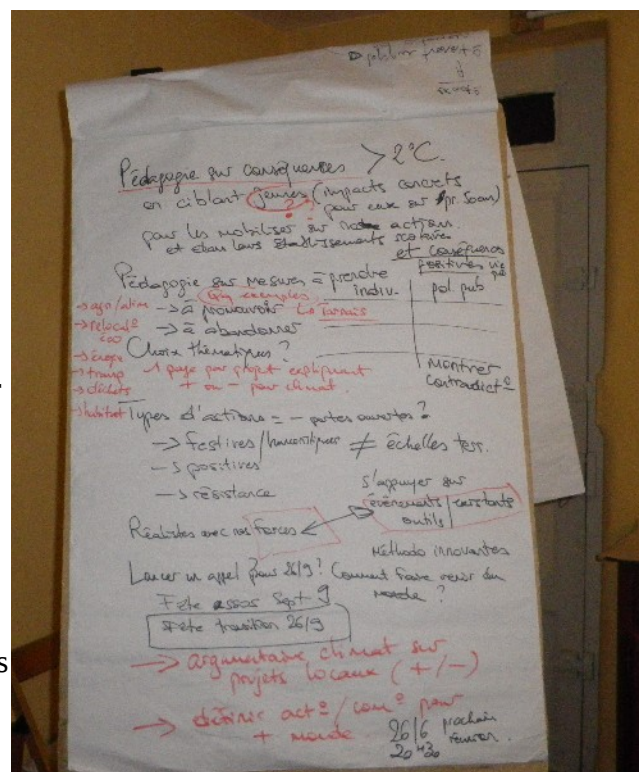 Pédagogie sur conséquences > 2°C.
en ciblant jeunes (impacts concrets
?
pour eux sur pr. 50ans)
pour les mobiliser sur nos actions.
et dans leurs établissements scolaires
et conséquences
positives
Pédagogie sur mesures à prendre
indiv. pol pub
Qq exemples
-> à promouvoir Le Tarnais
-> à abandonner
-> agri/alim
-> relocal°
-> énergie
-> transp
-> déchets
-> habitat
Choix thématiques ?
1 page par projet expliquant
+ ou - pour climat.
Montrer
contradict°
Types d'actions = - portes ouvertes ?
-> festives/humoristiques ≠ échelles terr.
-> positives
-> résistance
s'appuyer sur
évènements / existants
outils
Réalistes avec nos forces
Méthodo innovantes
Lancer un appel pour 26/9 ? Comment faire venir du
monde ?
Fête assos Sept 9
Fête transition 26/9
-> argumentaire climat sur
projets locaux (+/-)
-> définir act°/com° pour
+ monde
26/6 prochaine
réunion.
20h30
s